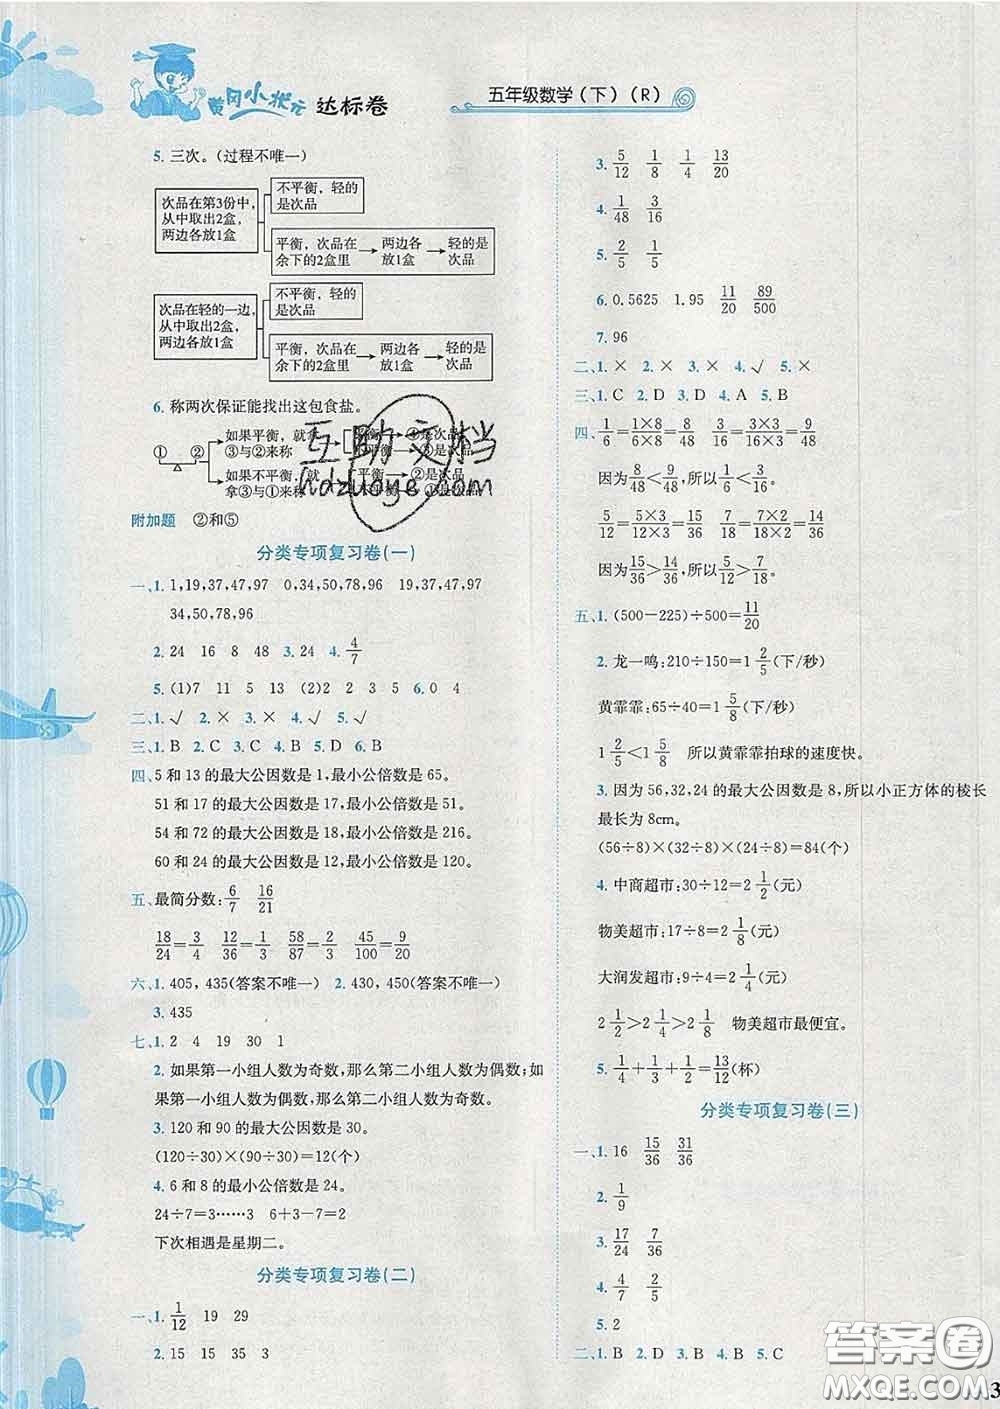 黄冈小状元 达标卷
五年级数学（下）（R）
5. 三次。（过程不唯一）
次品在第3份中，从中取出2盒，两边各放1盒
不平衡，轻的是次品
平衡，次品在余下的2盒里 → 两边各放1盒 → 轻的是次品
次品在轻的一边，从中取出2盒，两边各放1盒
不平衡，轻的是次品
平衡，次品在余下的2盒里 → 两边各放1盒 → 轻的是次品
6. 称两次保证能找出这包食盐。
① ②
如果平衡，就拿③与②来称
平衡 → ④是次品
不平衡 → ③是次品
如果不平衡，就拿③与①来称
平衡 → ②是次品
不平衡 → ①是次品
互助文档
hdzuoye.com
附加题 ②和⑤
分类专项复习卷(一)
一、1. 1,19,37,47,97 0,34,50,78,96 19,37,47,97
34,50,78,96
2. 24 16 8 48 3. 24 4. 4/7
5. (1)7 11 5 13 (2)2 2 3 5 2 6. 0 4
二、1. √ 2. × 3. × 4. √ 5. √
三、1. B 2. C 3. C 4. B 5. B 6. B
四、5 和 13 的最大公因数是 1，最小公倍数是 65。
51 和 17 的最大公因数是 17，最小公倍数是 51。
54 和 72 的最大公因数是 18，最小公倍数是 216。
60 和 24 的最大公因数是 12，最小公倍数是 120。
五、最简分数：6/7 16/21
18/24=3/4 12/36=1/3 58/87=2/3 45/100=9/20
六、1. 405，435(答案不唯一) 2. 430，450(答案不唯一)
3. 435
七、1. 2 4 19 30 1
2. 如果第一小组人数为奇数，那么第二小组人数为偶数；如
果第一小组人数为偶数，那么第二小组人数为奇数。
3. 120 和 90 的最大公因数是 30。
(120÷30)×(90÷30)=12(个)
4. 6 和 8 的最小公倍数是 24。
24÷7=3……3 6+3-7=2
下次相遇是星期二。
分类专项复习卷(二)
一、1. 1/12 19 29
2. 15 15 35 3
3. 5/12 1/8 1/4 13/20
4. 1/48 3/16
5. 2/5 1/5
6. 0.5625 1.95 11/20 89/500
7. 96
二、1. × 2. × 3. × 4. √ 5. ×
三、1. C 2. D 3. D 4. A 5. B
四、1/6=1×8/6×8=8/48 3/16=3×3/16×3=9/48
因为8/48<9/48，所以1/6<3/16。
5/12=5×3/12×3=15/36 7/18=7×2/18×2=14/36
因为15/36>14/36，所以5/12>7/18。
五、1. (500-225)÷500=11/20
2. 龙一鸣：210÷150=1 2/5(下/秒)
黄霏霏：65÷40=1 5/8(下/秒)
1 2/5<1 5/8 所以黄霏霏拍球的速度快。
3. 因为 56,32,24 的最大公因数是 8，所以小正方体的棱长
最长为 8cm。
(56÷8)×(32÷8)×(24÷8)=84(个)
4. 中商超市：30÷12=2 1/2(元)
物美超市：17÷8=2 1/8(元)
大润发超市：9÷4=2 1/4(元)
2 1/2>2 1/4>2 1/8 物美超市最便宜。
5. 1/4+1/3+1/2=13/12(杯)
分类专项复习卷(三)
一、1. 16 15/36 31/36
2. 1/9
3. 17/24 7/36
4. 3/20 3/20
5. 2
二、1. C 2. B 3. A 4. B 5. C
答案圈
MXQE.COM
3